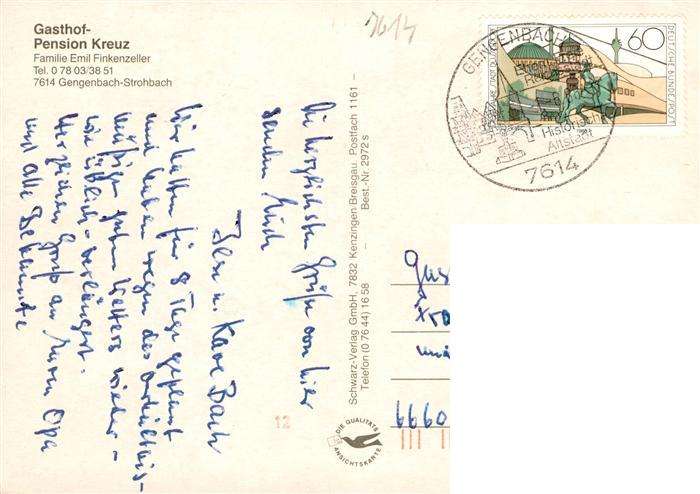 Gasthof-
Pension Kreuz
Familie Emil Finkenzeller
Tel. 0 78 03/38 51
7614 Gengenbach-Strohbach
7614
GENGENBACH
Historische
Altstadt
7614
60
DEUTSCHE BUNDESPOST
Die herzlichsten Grüße von hier
senden Euch
Ilse u. Karl Bach
Wir hatten für 8 Tage geplant
und haben wegen des verhältnis-
mäßigen guten Wetters wieder –
wie üblich – verlängert.
Herzlichen Gruß an Euren Opa
und alle Bekannte
Schwarz-Verlag GmbH, 7832 Kenzingen/Breisgau, Postfach 1161 –
Telefon (0 76 44) 16 58 – Best.-Nr. 2972 s
6660
12
DIE QUALITÄTS
ANSICHTSKARTE